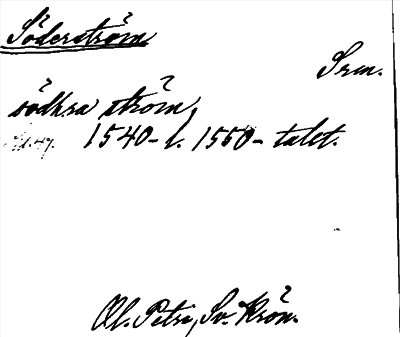 Söderström
Srm.
södhra ström,
1540- l. 1550- talet.
Ol. Petri, Sv. Krön.